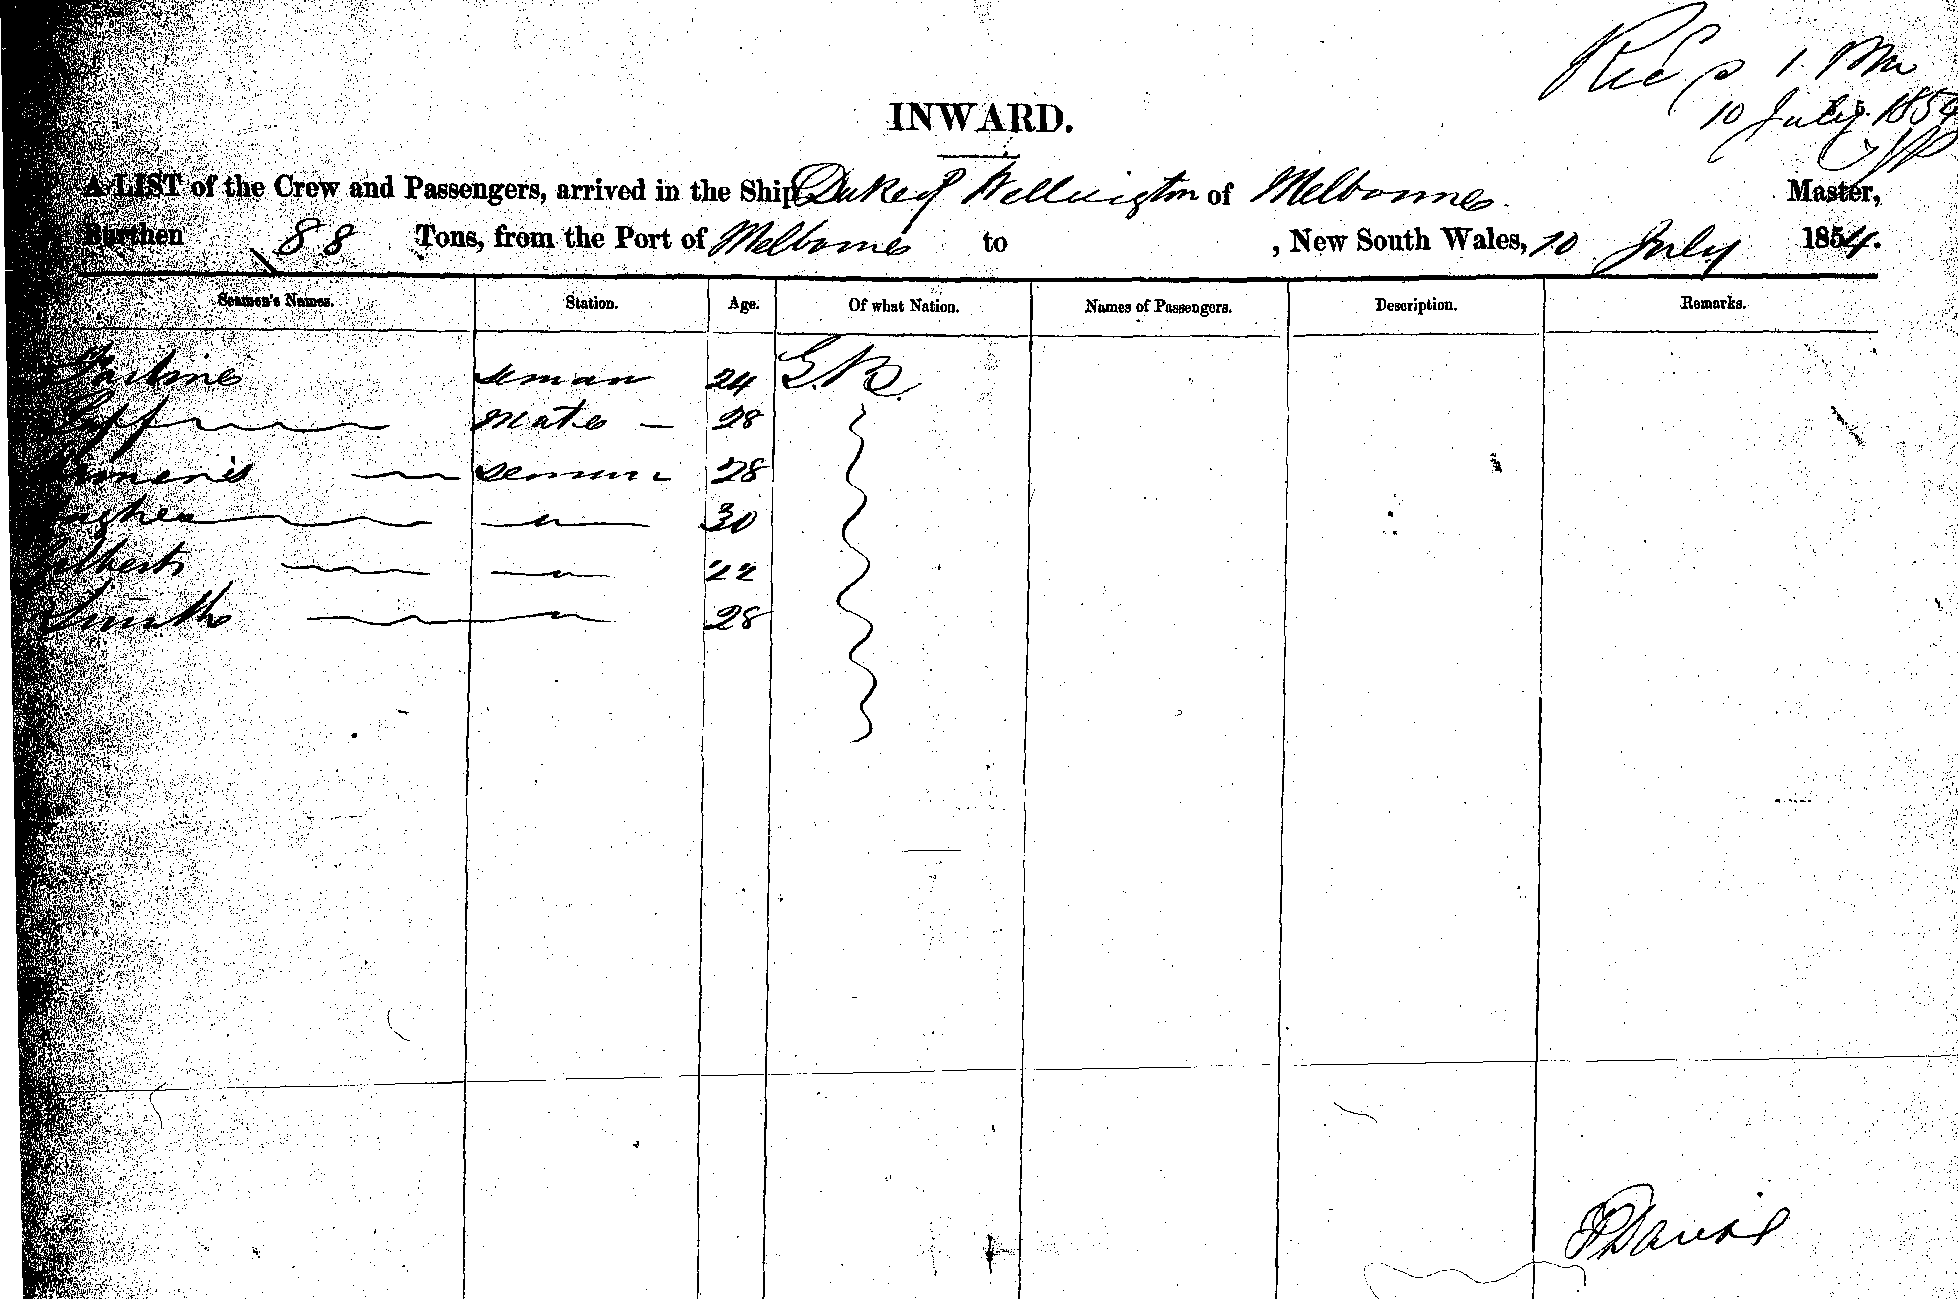 1 PM
10 July 1854
INWARD.
A LIST of the Crew and Passengers, arrived in the Ship Duke of Wellington of Melbourne Master,
Burthen 88 Tons, from the Port of Melbourne to , New South Wales, 10 July 1854.
Seamen's Names. Station. Age. Of what Nation. Names of Passengers. Description. Remarks.
seman 24 G.B.
Mate 28
seman 28
Hughes 30
22
Smith 28